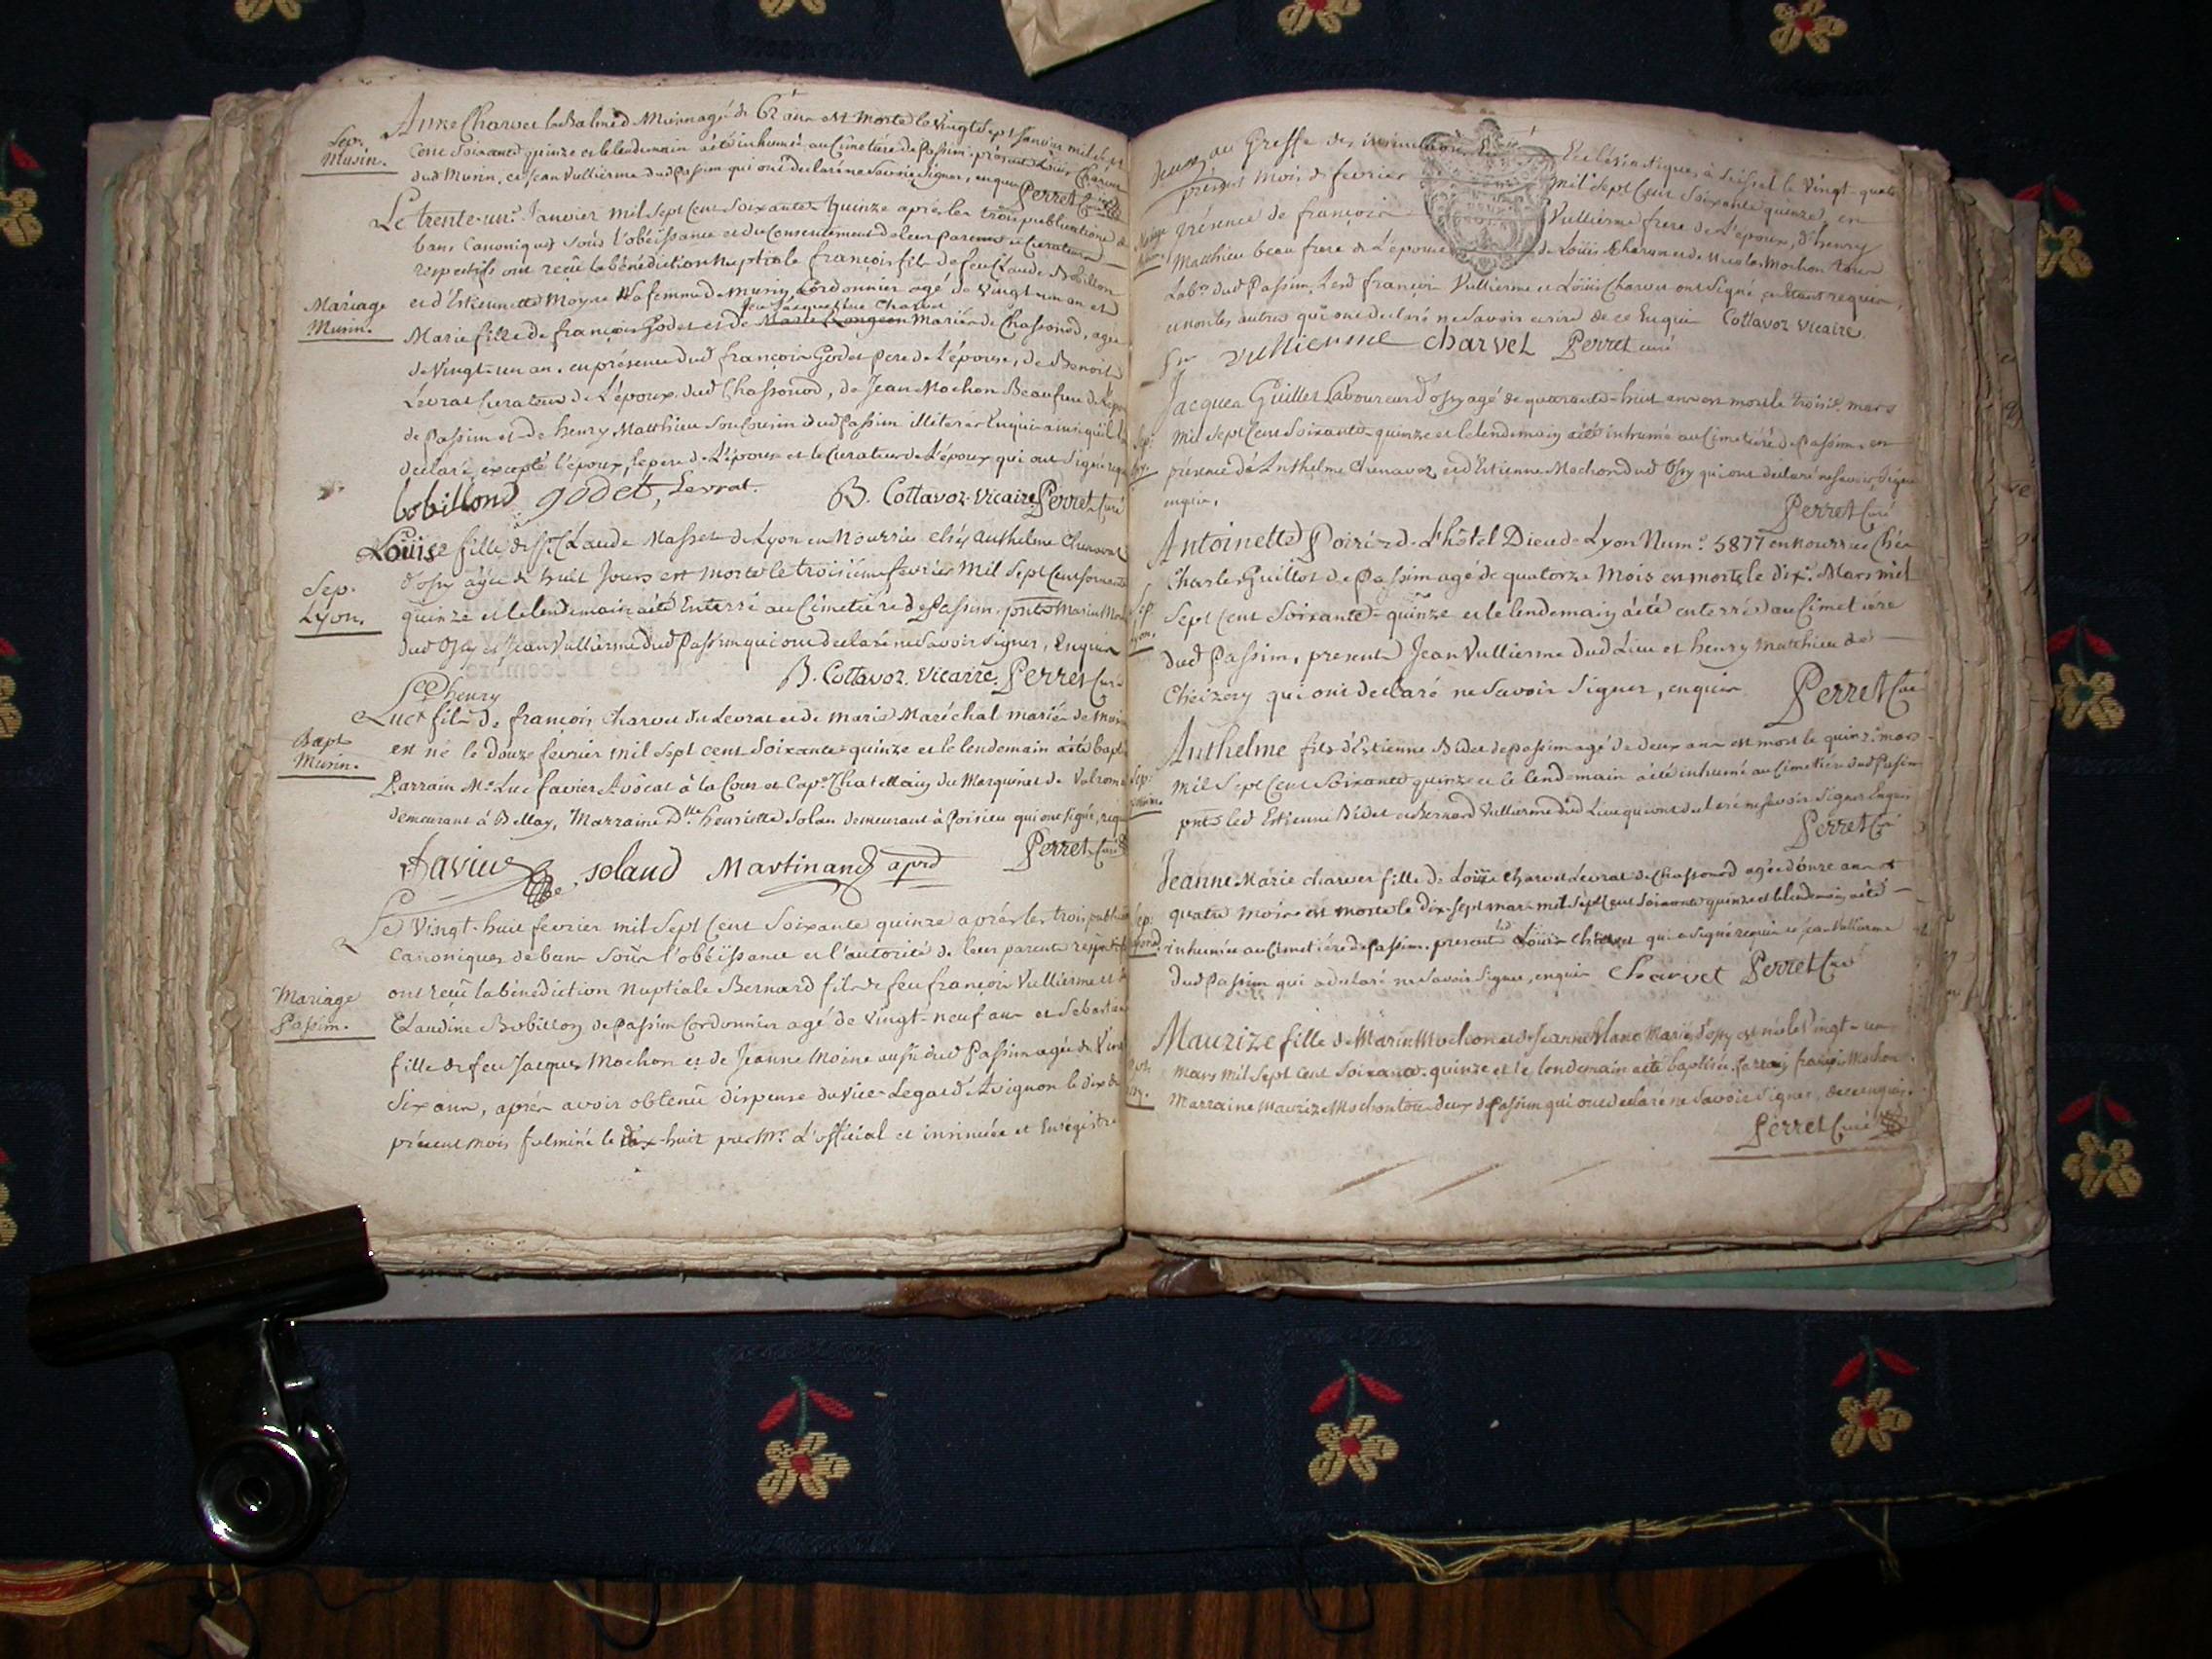 Sep.
Musin.
Anne Charvet la Balme de Musin agé de 62 ans est morte le vingt sept Janvier mil sept
cent soixante quinze et le lendemain a été inhumée au Cimetière de Passim. présents Louis Charvet
dud Musin, et Jean Vullierme dud Passim qui ont declaré ne savoir signer, enquis Perret Curé
Mariage
Musin.
Le trente-un.e Janvier mil sept cent soixante quinze après les trois publications de
bans Canoniques sous l'obéissance et du Consentement de leur parents et Curateurs
respectifs ont reçû la bénédiction Nuptiale françois fils de feu Claude Bobillon
et d'Estiennette Moyne sa femme de Musin Cordonnier agé de vingt un an et
Jeanne Jacqueline Charvet
Marie fille de françois Godet et de Marie Longeon Mariés de Chassonod, agée
de vingt-un an. en présence dud françois Godet pere de l'épouse, de Benoit
Levrat Curateur de L'époux dud Chassonod, de Jean Mochon Beaufrere de L'époux
de Passim et de henry Matthieu son Cousin dud Passim illiterés Enquis ainsi qu'il l'a
declaré excepté l'époux, le pere de L'épouse et le Curateur de L'époux qui ont signé requis
bobillond godet, Levrat. B. Cottavoz Vicaire Perret Curé
Sep.
Lyon.
Louise fille de Sr. Claude Masset de Lyon en Nourrice chés Anthelme Chenavaz
d'Ossy agée de huit Jours est morte le troisième fevrier Mil Sept Cent soixante
quinze et le lendemain a été Enterré au Cimetière de Passim. pnts Marin Mochon
dud Ossy et Jean Vullierme dud Passim qui ont declaré ne savoir signer, Enquis
B. Cottavoz. Vicaire. Perret Curé
Bapt
Musin.
henry
Luc fils de françois Charvet du Levrat et de marie Maréchal mariés de Musin
est né le douze fevrier mil sept cent soixante-quinze et le lendemain a été baptisé
Parrain Me Luc favier Avocat à la Cour et Cape. Chatellain du Marquisat de Valromey
demeurant à Bellay, Marraine Dlle henriette Solan demeurant à Poisieu qui ont signé, requis
favier solaud Martinand aprd Perret Curé
Mariage
Passim.
Le vingt-huit fevrier mil sept cent soixante quinze après les trois publications
Canoniques de bans sous l'obéissance et l'autorité de leur parents respectifs
ont reçû la bénédiction Nuptiale Bernard fils de feu françois Vullierme et de
Claudine Bobillon de Passim Cordonnier agé de vingt-neuf ans et Sebastienne
fille de feu Jacques Mochon et de Jeanne Moine aussi dud Passim agée de vingt
six ans, après avoir obtenû dispense du vice Legat d'Avignon le dix du
présent mois fulminé le dix-huit par Mr. L'official et insinuée et Enregistrée
deux, au Greffe des insinuations Ecclésiastiques à Seissel le vingt-quatre
présent mois de fevrier mil sept cent soixante quinze, en
présence de françois Vullierme frere de l'époux, d'henry
Matthieu beau frere de L'épouse de Louis Charvet et de Nicolas Mochon tous
Labrs dud Passim, Led françois Vullierme et Louis Charvet ont signé, en étant requis,
et non les autres qui ont declaré ne savoir ecrire de ce Enquis Cottavoz vicaire.
fr vullierme charvet Perret curé
Sep:
Jacques Guillet Laboureur d'ossy agé de quarante-huit ans est mort le troise. mars
mil sept cent soixante-quinze et le lendemain a été inhumé au Cimetière de Passim, en
présence d'Anthelme Chenavoz et d'Estienne Mochon dud Ossy qui ont declaré ne savoir signer
enquis.
Perret Curé
Sep.
Lyon.
Antoinette Poiré de L'hôtel Dieu de Lyon Num.o 5877 en nourrice chés
Charles Guillot de Passim agé de quatorze Mois est morte le dix.e Mars mil
sept cent soixante-quinze et le lendemain a été enterrée au Cimetière
dud Passim, présents Jean Vullierme dud Lieu et henry Matthieu de
Cheizery qui ont declaré ne savoir signer, enquis Perret Curé
Sep:
Anthelme fils d'Estienne Bidet de passim agé de deux ans est mort le quinze.e mars
mil sept cent soixante quinze et le lendemain a été inhumé au Cimetière dud Passim
pnts led Estienne Bidet et Bernard Vullierme dud Lieu qui ont declaré ne savoir signer Enquis
Perret Curé
Jeanne Marie charvet fille de Louis Charvet Levrat de Chassonod agée d'onze ans et
quatre mois est morte le dix-sept mars mil sept cent soixante quinze et le lendemain a été
inhumée au Cimetière de Passim. présents led Louis Charvet qui a signé requis et jean Vullierme
dud Passim qui a declaré ne savoir signer, enquis Charvet Perret Curé
Maurize fille de Marin Mochon et de Jeanne Blanc Mariés d'ossy est née le vingt-un
mars mil sept cent soixante-quinze et le lendemain a été baptisée. Parrain françois Mochon.
Marraine Maurize Mochon tous deux de Passim qui ont declaré ne savoir signer, de ce enquis.
Perret Curé